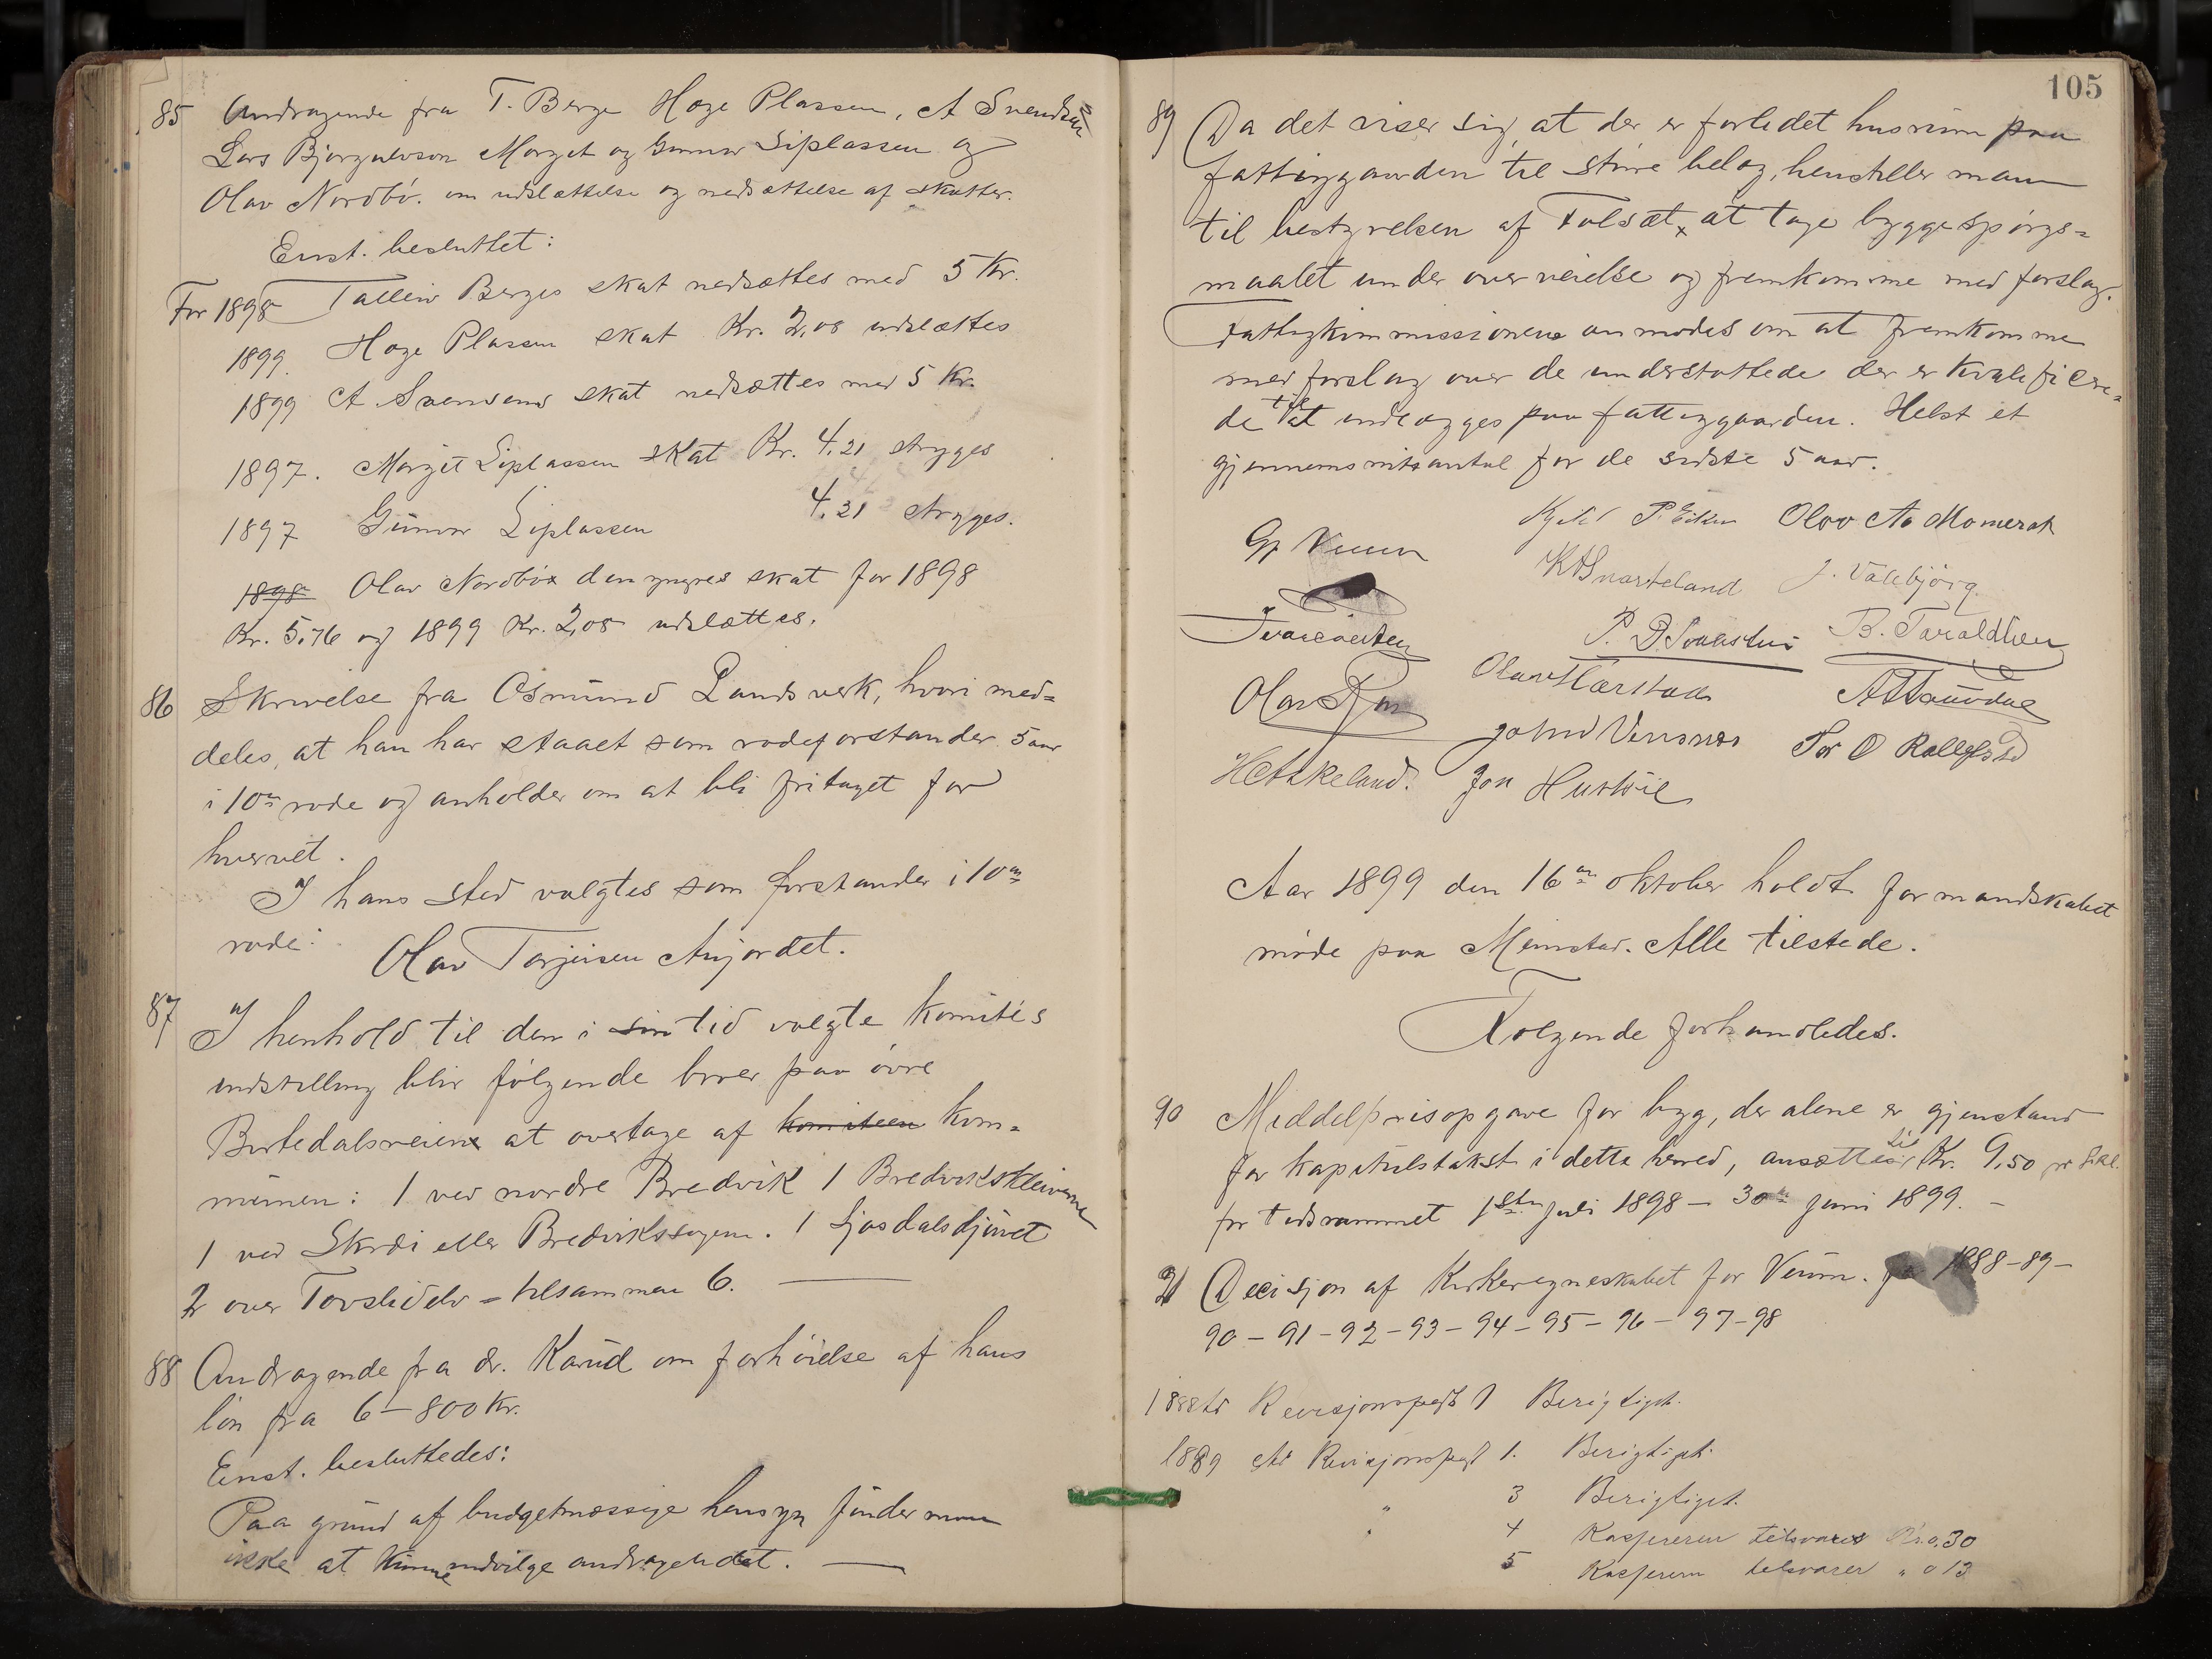 85 Andragende fra T. Berge Hoge Plassen, A Svendsen
Lars Bjorgulvson Morget og Gunnar Liplassen og
Olav Nordbö. om udslættelse og nedsættelse af skatter.
Enst. besluttet:
For 1898 Talleiv Berges skat nedsættes med 5 Kr.
1899. Hoge Plassen skat Kr. 2,08 udslættes
1899 A. Svensens skat nedsættes med 5 Kr.
1897. Morget Liplassen skat Kr. 4.21 stryges
1897 Gunnar Liplassen 4.21 stryges.
1898 Olav Nordbös den yngres skat for 1898
Kr. 5.76 og 1899 Kr. 2,08 udslættes.
86 Skrivelse fra Osmund Landsverk, hvori med=
deles, at han har staaet som rodeforstander 5 aar
i 10de rode og anholder om at bli fritaget for
hvervet.
I hans sted valgtes som forstander i 10de
rode: Olav Torjusen Aujordet.
87 I henhold til den i sin tid valgte komités
indstilling blir følgende broer paa övre
Bertedalsveien at overtage af komiteen kom=
munen: 1 ved nordre Bredvik 1 Bredvikskleivene
1 ved Skrdi eller Bredvikssagen. 1 Ljosdalsdjuvet
2 over Tovslidelv = tilsammen 6.
88 Andragende fra dr. Kaurd om forhöielse af hans
lön fra 6-800 Kr.
Enst. besluttedes:
Paa grund af budgetmæssige hensyn finder man
ikke at kunne indvilge andragendet.
105
89 Da det viser sig, at der er forledet husrum paa
fattiggaarden til större belæg, henstiller man
til bestyrelsen af Folsæt, at tage byggespörgs=
maalet under overveielse og fremkomme med forslag.
Fattigkommissionen anmodes om at fremkomme
med forslag over de understöttede der er kvalificere=
de til at indlægges paa fattiggaarden. Helst et
gjennemsnitsantal for de sidste 5 aar.
Kjetil P. Eiken Olav Aa Momrak
Gj Veum
K A Snarteland J. Valebjörg
P. D. B. Taraldlien
Olav Harstad
John Versnes Tor O Rollefstad
H Askeland. Jon Hustveit
Aar 1899 den 16de oktober holdt formandskabet
möde paa Meinstad. Alle tilstede.
Følgende forhandledes.
90 Middelprisopgave for byg, der alene er gjenstand
for kapitulstakst i dette herred, ansættes til Kr. 9,50 pr hekl.
for tidsrummet 1ste juli 1898 - 30te juni 1899. -
91 Decisjon af Kirkeregneskabet for Veum. for 1888-89-
90-91-92-93-94-95-96-97-98
1888 Revisjonspost 1 Berigtiget.
1889 Revisjonspost 1. Berigtiget.
" 3 Berigtiget.
" 4 Kassereren tilsvarer Kr. 0,30
5 Kassereren tilsvarer " 0 13